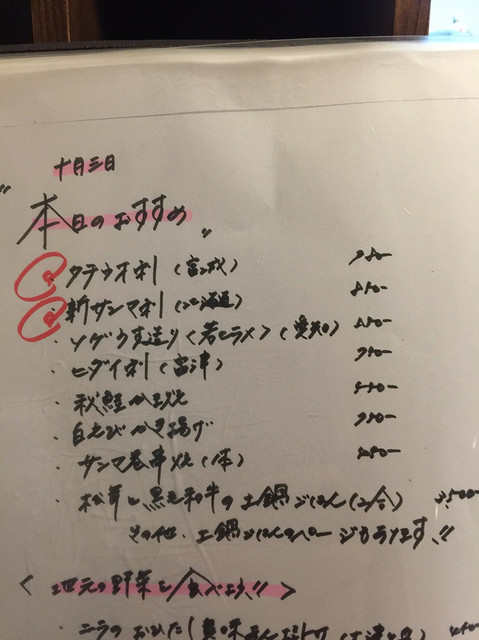 十月三日
"本日のおすすめ"
・タチウオ刺(宮城)
・新サンマ刺(北海道) 850-
・ソゲウす造り〈若ヒラメ〉(愛知) 850-
・ヒダイ刺(宮津)
・秋鮭かま焼
・白えびかき揚げ
・サンマ巻串焼(1本)
・松茸と黒毛和牛の土鍋ごはん(2合)
その他、土鍋ごはんのページもあります!!
〈地元の野菜を食べよう!!〉
・ニラのおひたし(